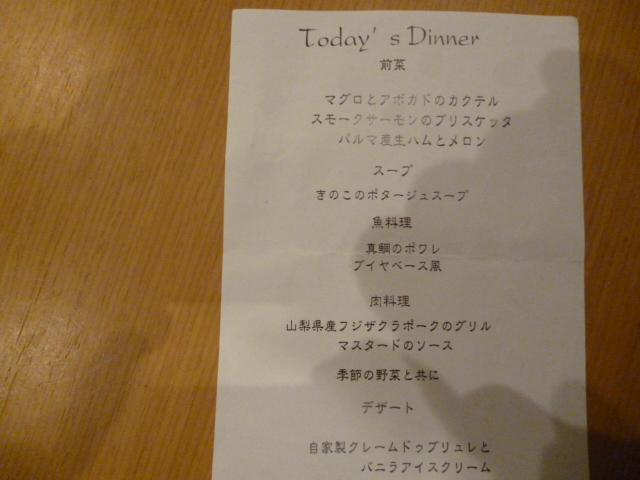 Today's Dinner
前菜
マグロとアボカドのカクテル
スモークサーモンのブリスケッタ
パルマ産生ハムとメロン
スープ
きのこのポタージュスープ
魚料理
真鯛のポワレ
ブイヤベース風
肉料理
山梨県産フジザクラポークのグリル
マスタードのソース
季節の野菜と共に
デザート
自家製クレームドゥブリュレと
バニラアイスクリーム